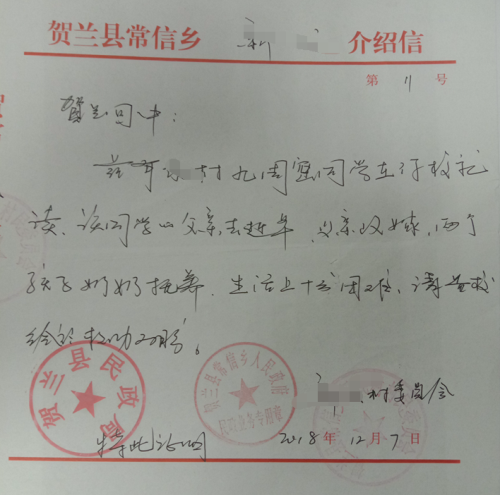 贺兰县常信乡 利 介绍信
第 11 号
贺兰回中：
兹有 村 九周宽同学在你校就
读，该同学以父亲去逝早，父亲改嫁，两个
孩子奶奶抚养，生活上十分困难，请学校
给于救助为盼。
村委员会
特此证明
2018年12月7日
贺兰县民政局
贺兰县常信乡人民政府
民政业务专用章